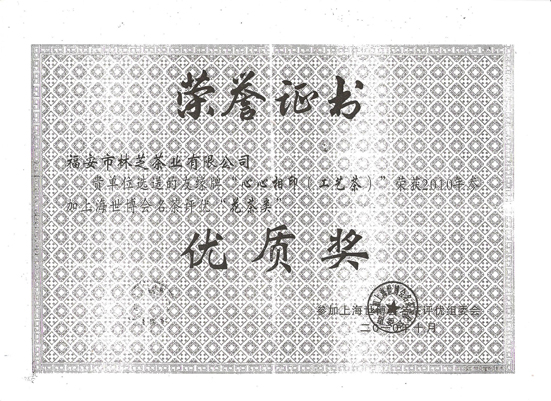 荣誉证书
福安市林芝茶业有限公司
贵单位选送的友缘牌“心心相印（工艺茶）”荣获2010年参
加上海世博会名茶评优“花茶类”
优质奖
参加上海世博会名茶评优组委会
二〇一〇年十月